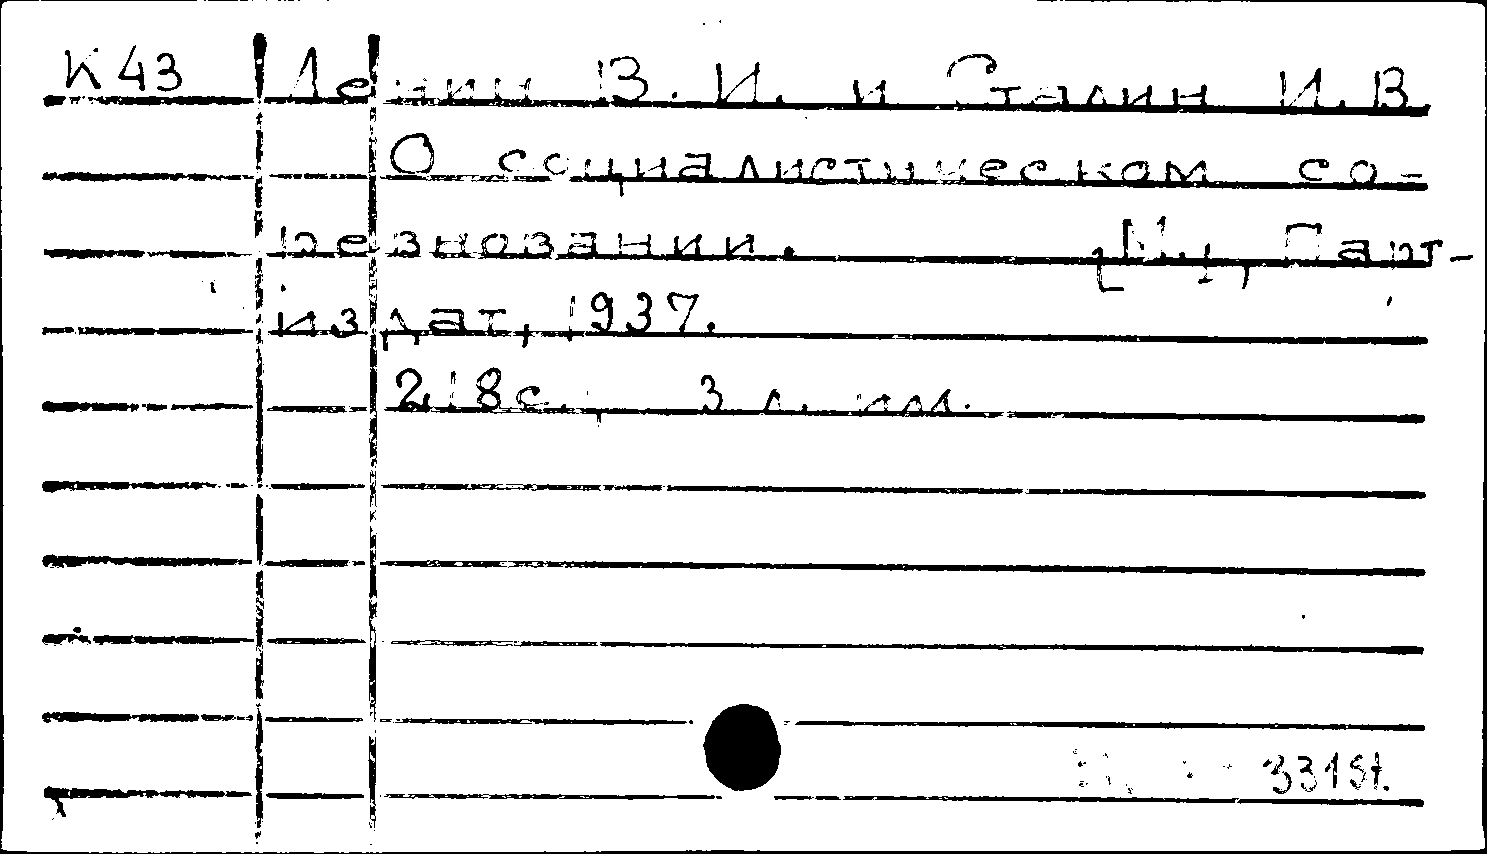 К43 Ленин В. И. и Сталин И. В.
О социалистическом со-
ревновании. [М.], Парт-
издат, 1937.
218с., 3 л. илл.
331St.